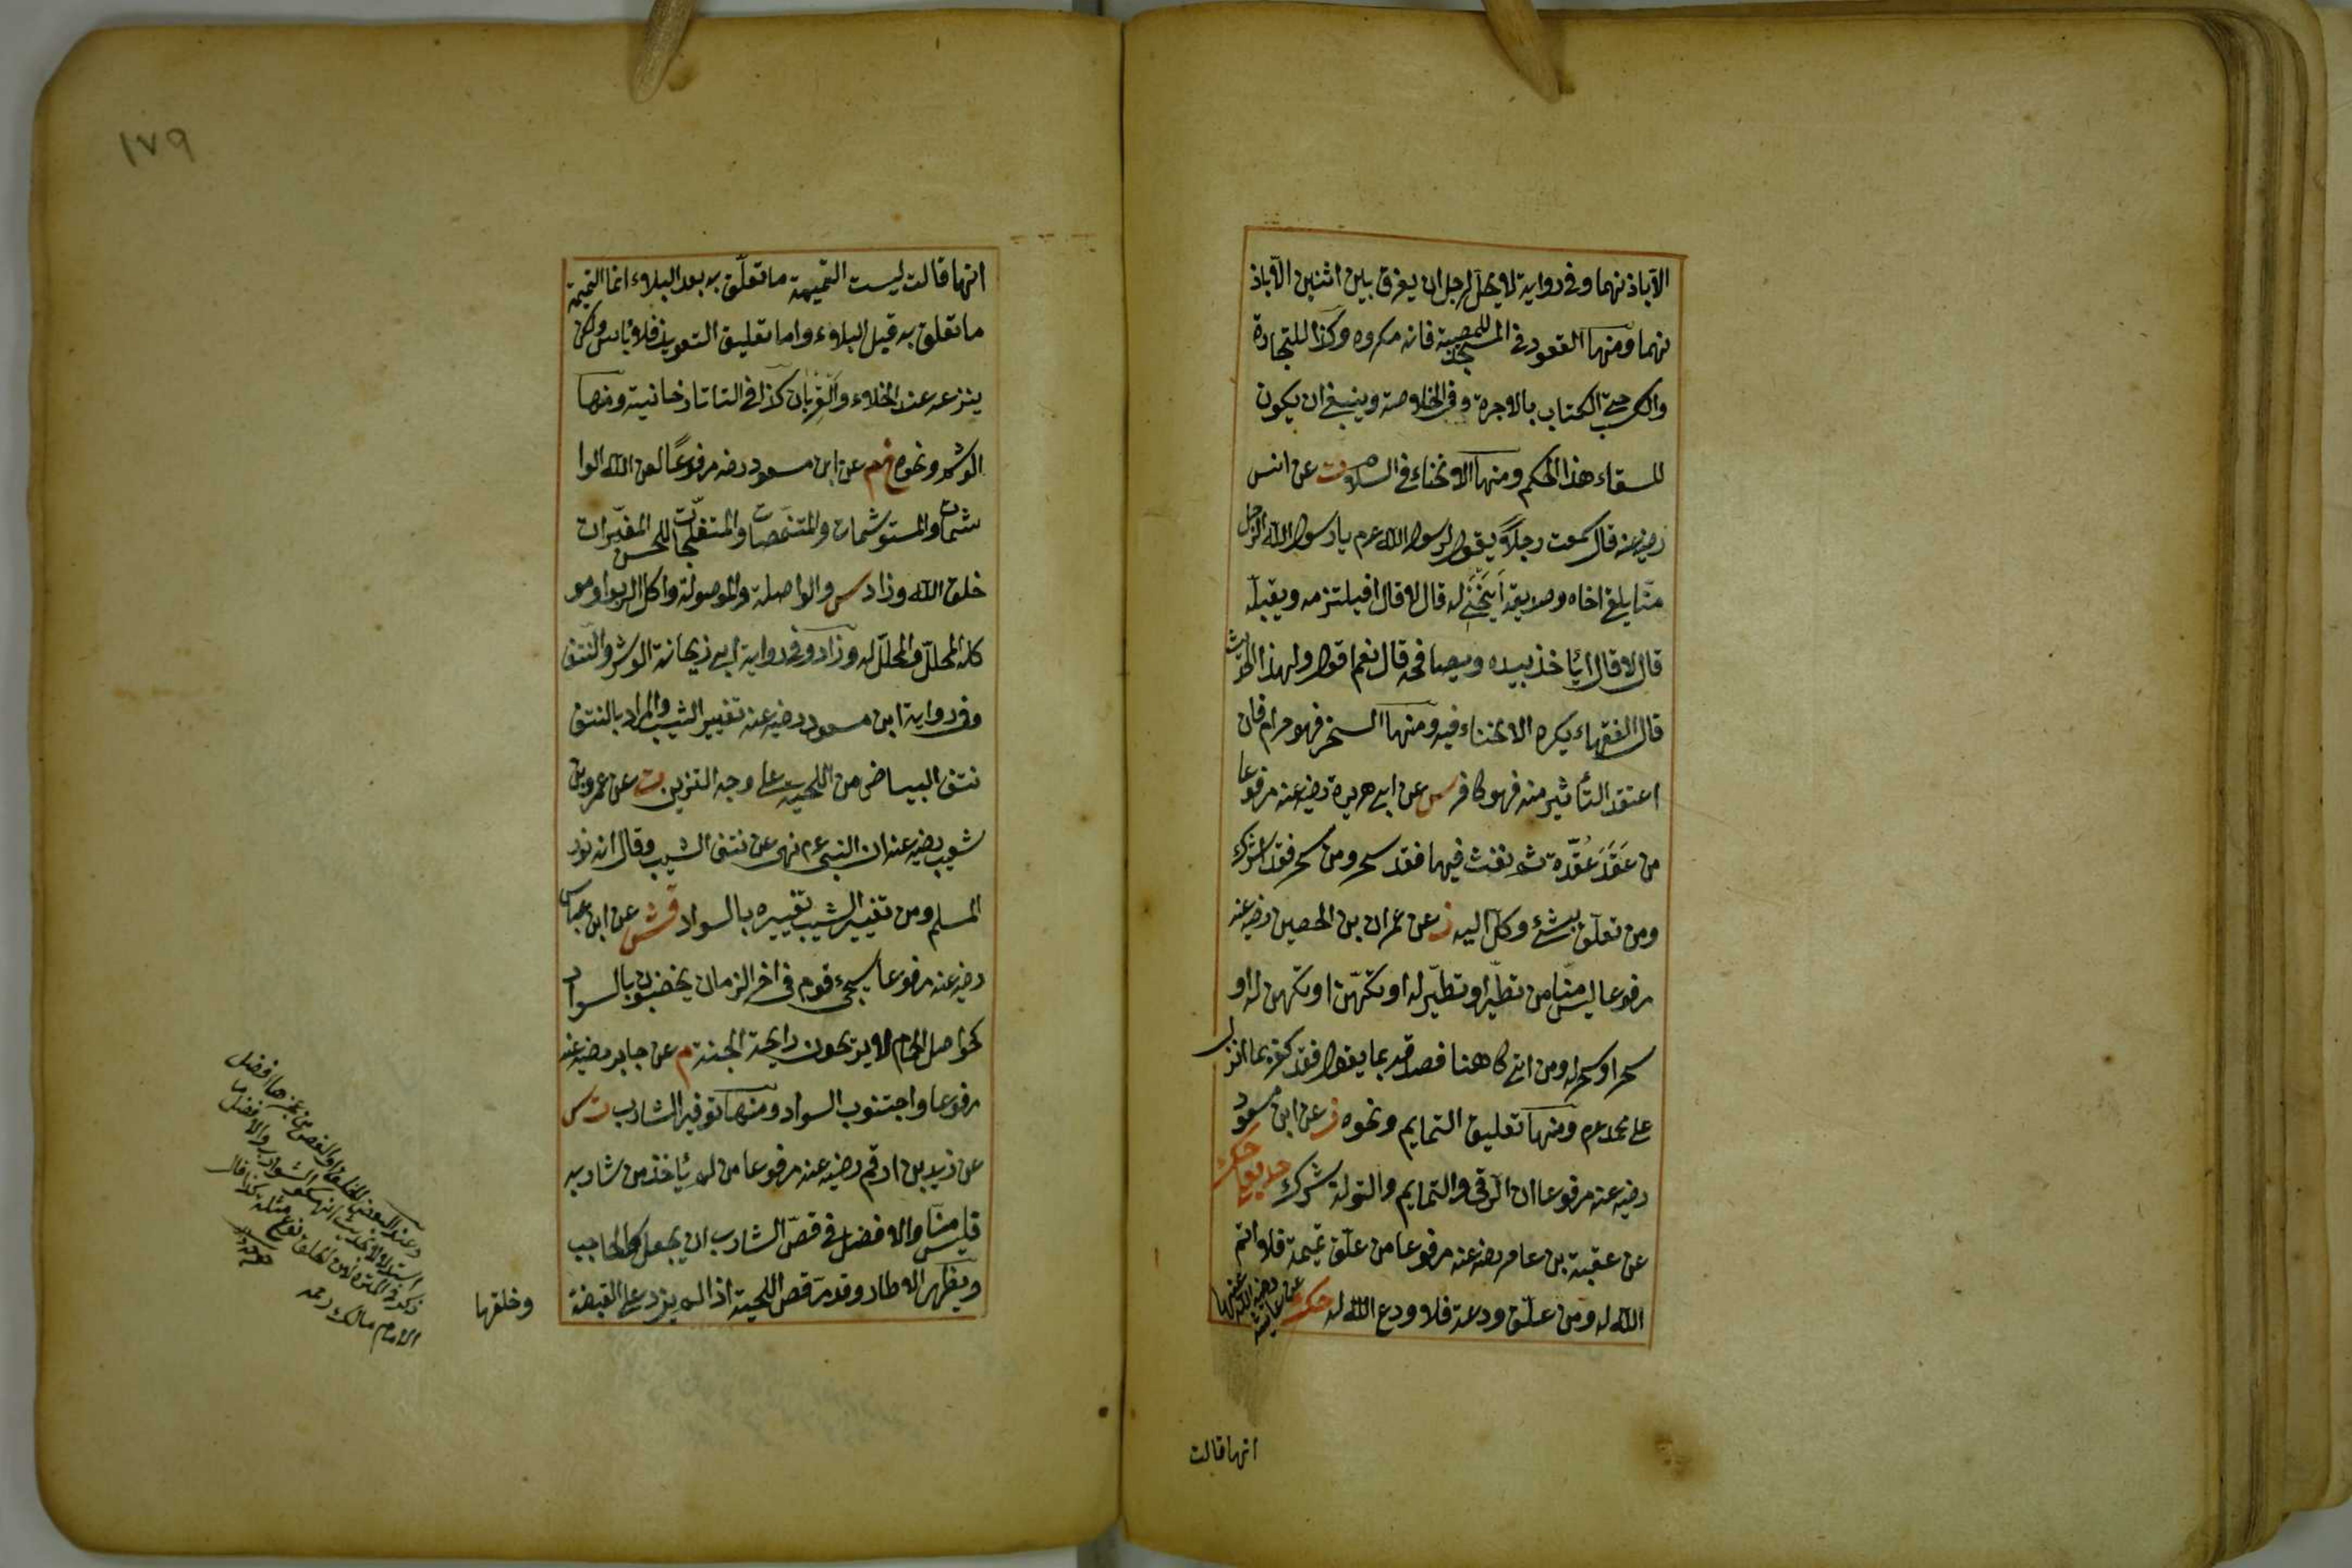 الا باذنهما وفى رواية لا يحل لرجل ان يفرق بين اثنين الا باذ
نهما ومنها القعود فى المسجد للمصيبة فانه مكروه وكذا للتجارة
والكسب حتى الكتاب بالاجرة وفى الخلاصة وينبغى ان يكون
للسقاء هذا الحكم ومنها الانحناء فى السلام ت عن انس
رضي عنه قال سمعت رجلاً يقول لرسول الله عم يا رسول الله الرجل
منّا يلقى اخاه وصديقه أينحني له قال لا قال افيلتزمه ويقبله
قال لا قال ايأخذ بيده ويصافحه قال نعم اقول ولهذا الحديث
قال الفقهاء يكره الانحناء فيه ومنها السحر فهو حرام فان
اعتقد التأثير منه فهو كافر س عن ابى هريرة رضي عنه مرفوعا
من عَقَدَ عُقْدة ثم نفث فيها فقد سحر ومن سحر فقد اشرك
ومن تعلّق بشئ وكل اليه ز عن عمران بن الحصين رضي عنه
مرفوعا ليس منّا من تطيّر او تطيّر له او تكهّن او تكهن له او
سحر او سحر له ومن اتى كاهنا فصدقه بما يقول فقد كفر بما انزل
على محمد عم ومنها تعليق التمايم ونحوه ز عن ابن مسعود
رضي عنه مرفوعا ان الرقى والتمايم والتولة شرك حد يع حك
عن عقبة بن عامر رضي عنه مرفوعا من علّق تميمة فلا اتم
الله له ومن علّق ودعة فلا ودع الله له حك عن عايشة رضي الله عنها
انها قالت
١٧٩
انها قالت ليست التميمة ما تعلّق به بعد البلاء انما التميمة
ما تعلق به قبل البلاء واما تعليق التعويذ فلا بأس ولكن
ينزعه عند الخلاء والقربان كذا فى التاتارخانية ومنها
الوشم ونحوه خ م عن ابن مسعود رضه مرفوعًا لعن الله الوا
شمات والمستوشمات والمتنمّصات والمتفلّجات للحسن المغيّرات
خلق الله وزاد س والواصلة والموصولة واكل الربوا ومو
كله والمحلل والمحلّل له وزاد وفى رواية ابى ريحانة الوشر والنتف
وفى رواية ابن مسعود رضي عنه تغيير الشيب والمراد بالنتف
نتف البياض من اللحية على وجه التزين ت عن عمرو بن
شعيب رضي عنه ان النبى عم نهى عن نتف الشيب وقال انه نور
المسلم ومن تغيير الشيب تغييره بالسواد عن ابن عباس
رضي عنه مرفوعا يجىء قوم فى اخر الزمان يخضبون بالسواد
كحواصل الحمام لا يريحون رايحة الجنة م عن جابر رضي عنه
مرفوعا واجتنوب السواد ومنها توفير الشارب ت س
عن زيد بن ارقم رضي عنه مرفوعا من لم يأخذ من شاربه
فليس منّا والافضل فى قصّ الشارب ان يجعل كالحاجب
ويظهر الاطار وقد مرّ قص اللحية اذا لم يزد على القبضة
وخلقها
الامام مالك رحمه